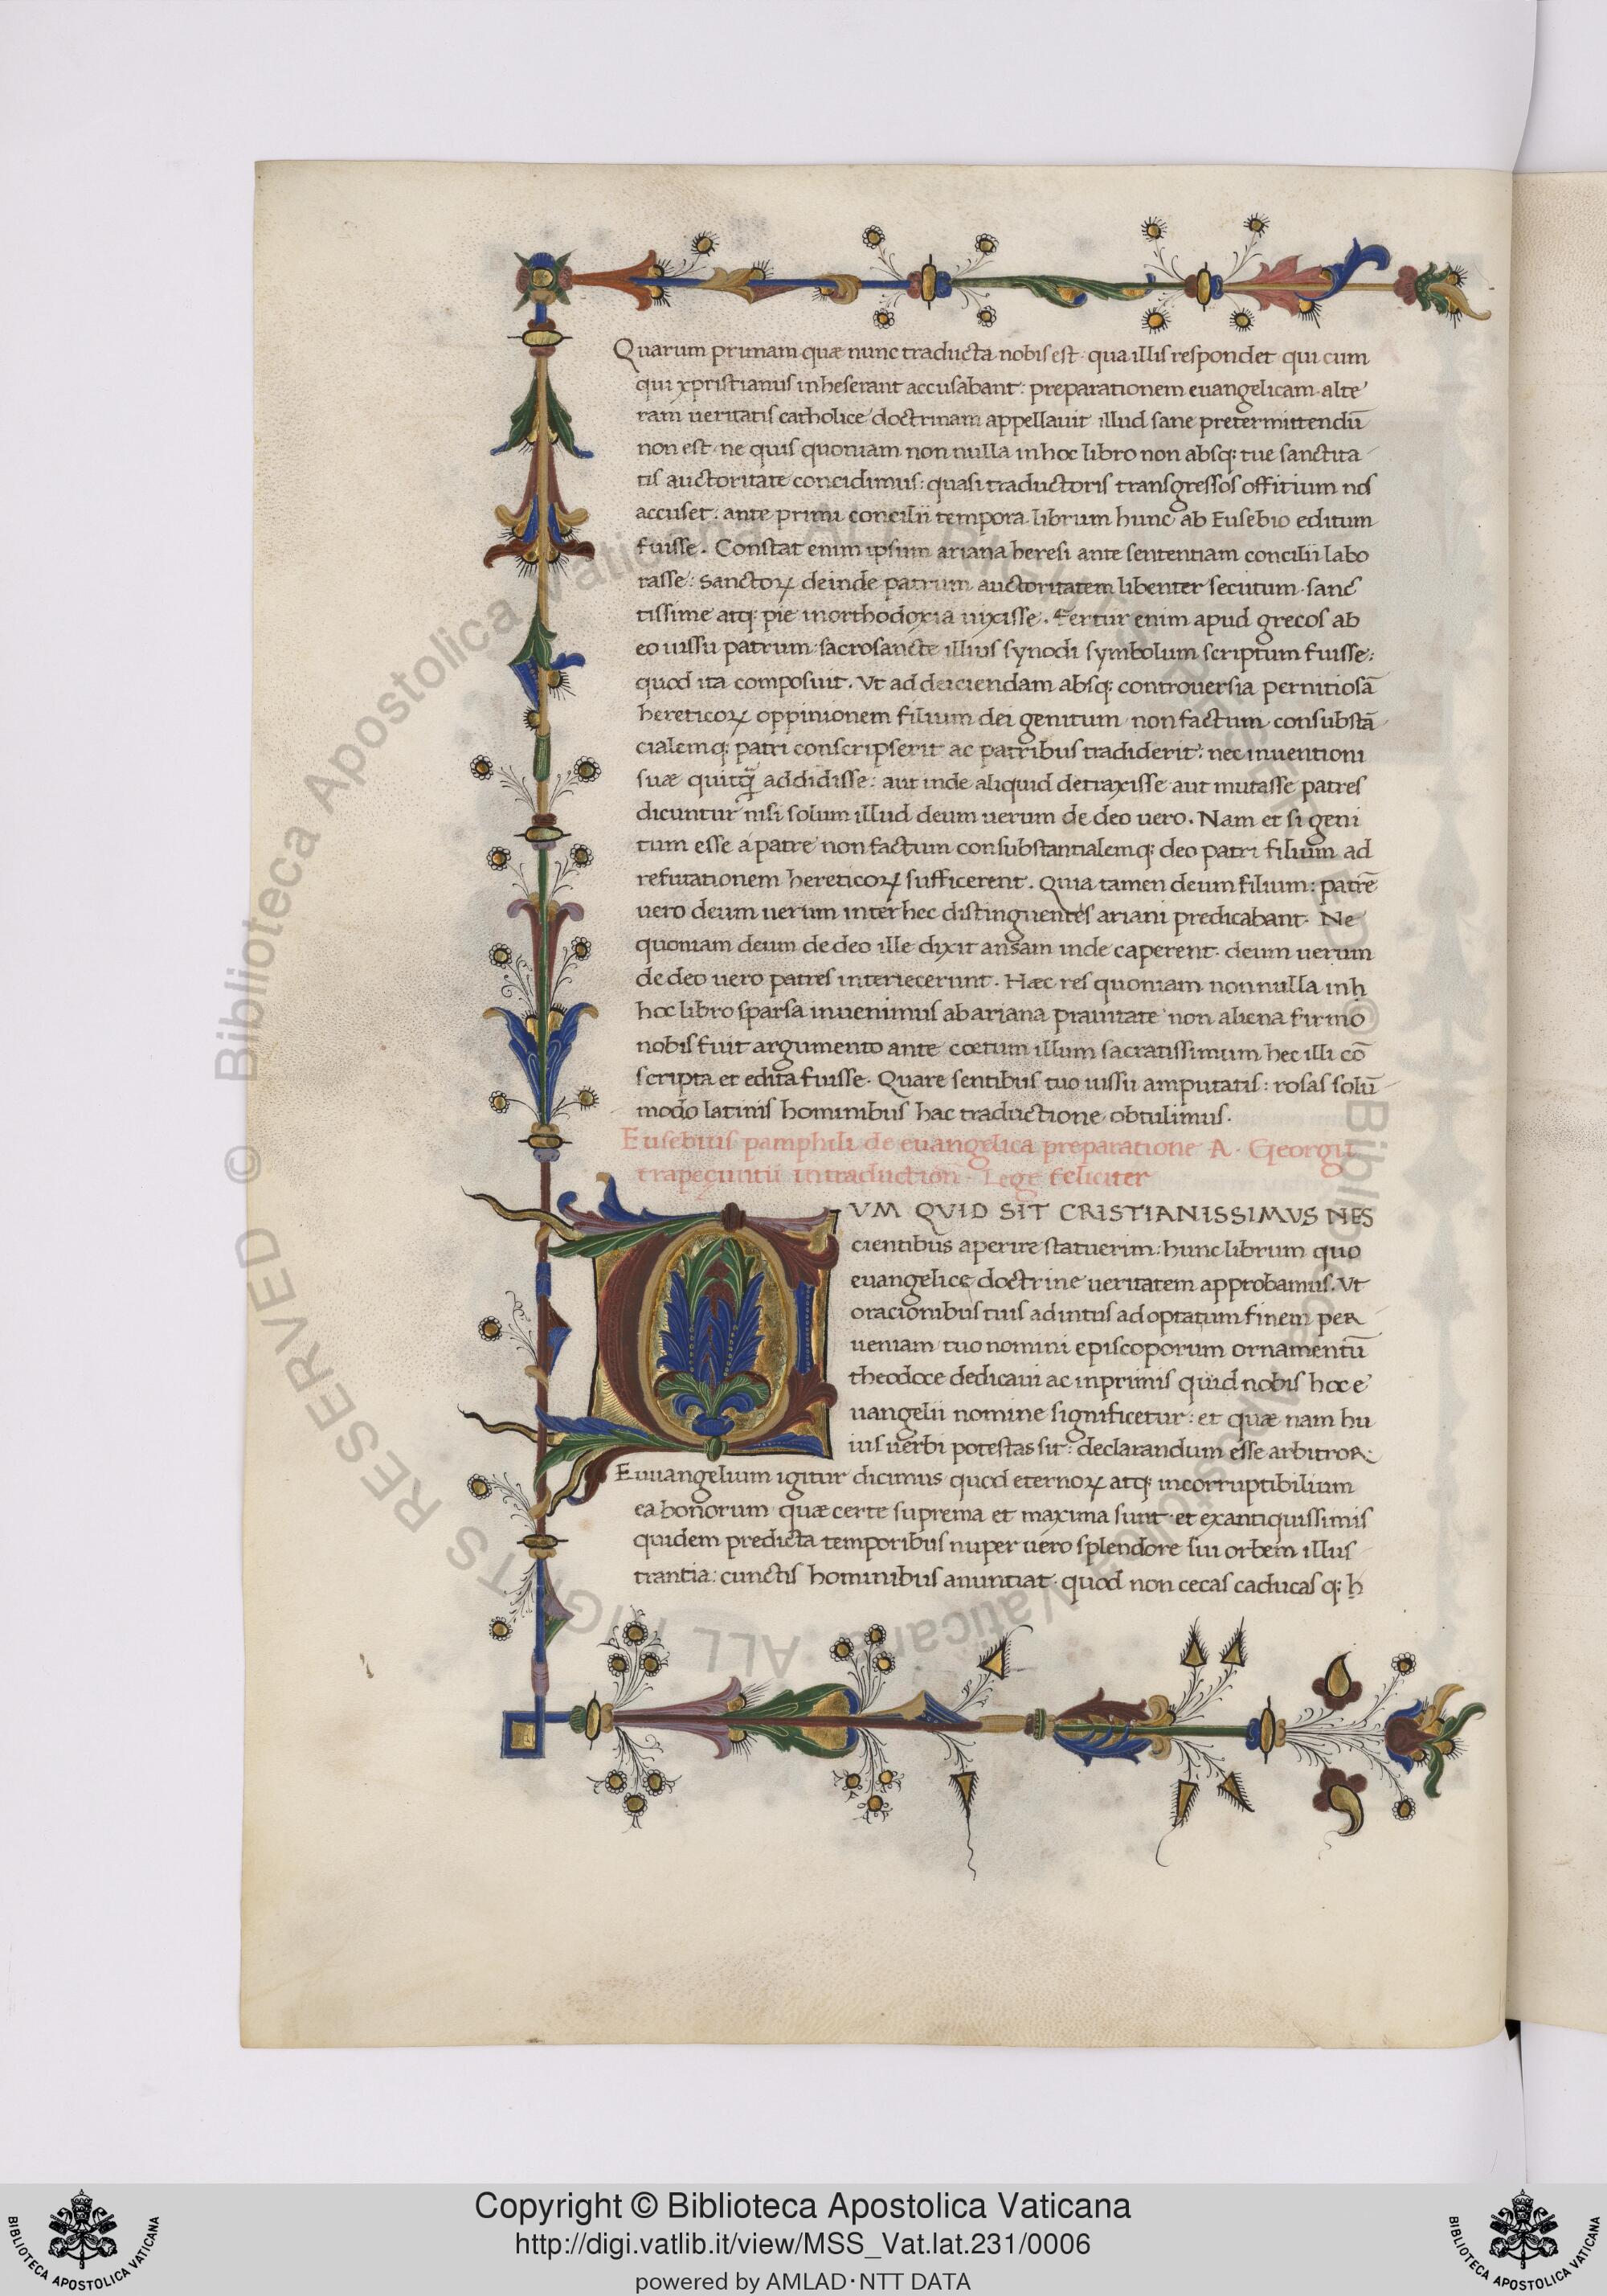 Quarum primam quæ nunc traducta nobis est · qua illis respondet qui cum
qui xpristianis inheserant accusabant : preparationem euangelicam · alte
ram ueritatis catholice doctrinam appellauit illud sane pretermittendū
non est · ne quis quoniam non nulla in hoc libro non absq; tue sanctita
tis auctoritate concidimus : quasi traductoris transgressos offitium nos
accuset : ante primi concilii tempora librum hunc ab Eusebio editum
fuisse . Constat enim ipsum ariana heresi ante sententiam concilii labo
rasse : sanctoꝝ deinde patrum auctoritatem libenter secutum · sanc
tissime atq; pie in orthodoxia uixisse . Fertur enim apud grecos ab
eo iussu patrum sacrosancte illius synodi symbolum scriptum fuisse :
quod ita composuit . Vt ad deiciendam absq; controuersia pernitiosā
hereticoꝝ oppinionem filium dei genitum · non factum · consubstā
cialemq; patri conscripserit ac patribus tradiderit : nec inuentioni
suæ addidisse : aut inde aliquid detraxisse aut mutasse patres
dicuntur nisi solum illud deum uerum de deo uero . Nam et si geni
tum esse a patre non factum consubstantialemq; deo patri filium ad
refutationem hereticoꝝ sufficerent . Quia tamen deum filium : patrē
uero deum uerum inter hec distinguentes ariani predicabant · Ne
quoniam deum de deo ille dixit ansam inde caperent · deum uerum
de deo uero patres interiecerunt . Hæc res quoniam nonnulla in h
hoc libro sparsa inuenimus ab ariana prauitate non aliena firmo
nobis fuit argumento ante cœtum illum sacratissimum hec illi cō
scripta et edita fuisse · Quare sentibus tuo iussu amputatis : rosas solū
modo latinis hominibus hac traductione obtulimus .
Eusebius pamphili de euangelica preparatione A · Georgii
trapeçuntii in traduction · Lege feliciter
VM QVID SIT CRISTIANISSIMVS NES
cientibus aperire statuerim : hunc librum quo
euangelice doctrine ueritatem approbamus . Vt
oracionibus tuis adiutus ad optatum finem per
ueniam tuo nomini episcoporum ornamentū
theodoce dedicaui ac inprimis quid nobis hoc e
uangelii nomine significetur : et quæ nam hu
ius uerbi potestas sit : declarandum esse arbitror ·
Euuangelium igitur dicimus quod eternoꝝ atq; incorruptibilium
ea bonorum quæ certe suprema et maxima sunt · et ex antiquissimis
quidem predicta temporibus nuper uero splendore sui orbem illus
trantia : cunctis hominibus anuntiat · quod non cecas caducas q; h
© Biblioteca Apostolica Vaticana ALL RIGHTS RESERVED
© Biblioteca Apostolica Vaticana ALL RIGHTS RESERVED
Copyright © Biblioteca Apostolica Vaticana
http://digi.vatlib.it/view/MSS_Vat.lat.231/0006
powered by AMLAD·NTT DATA
BIBLIOTECA APOSTOLICA VATICANA
BIBLIOTECA APOSTOLICA VATICANA